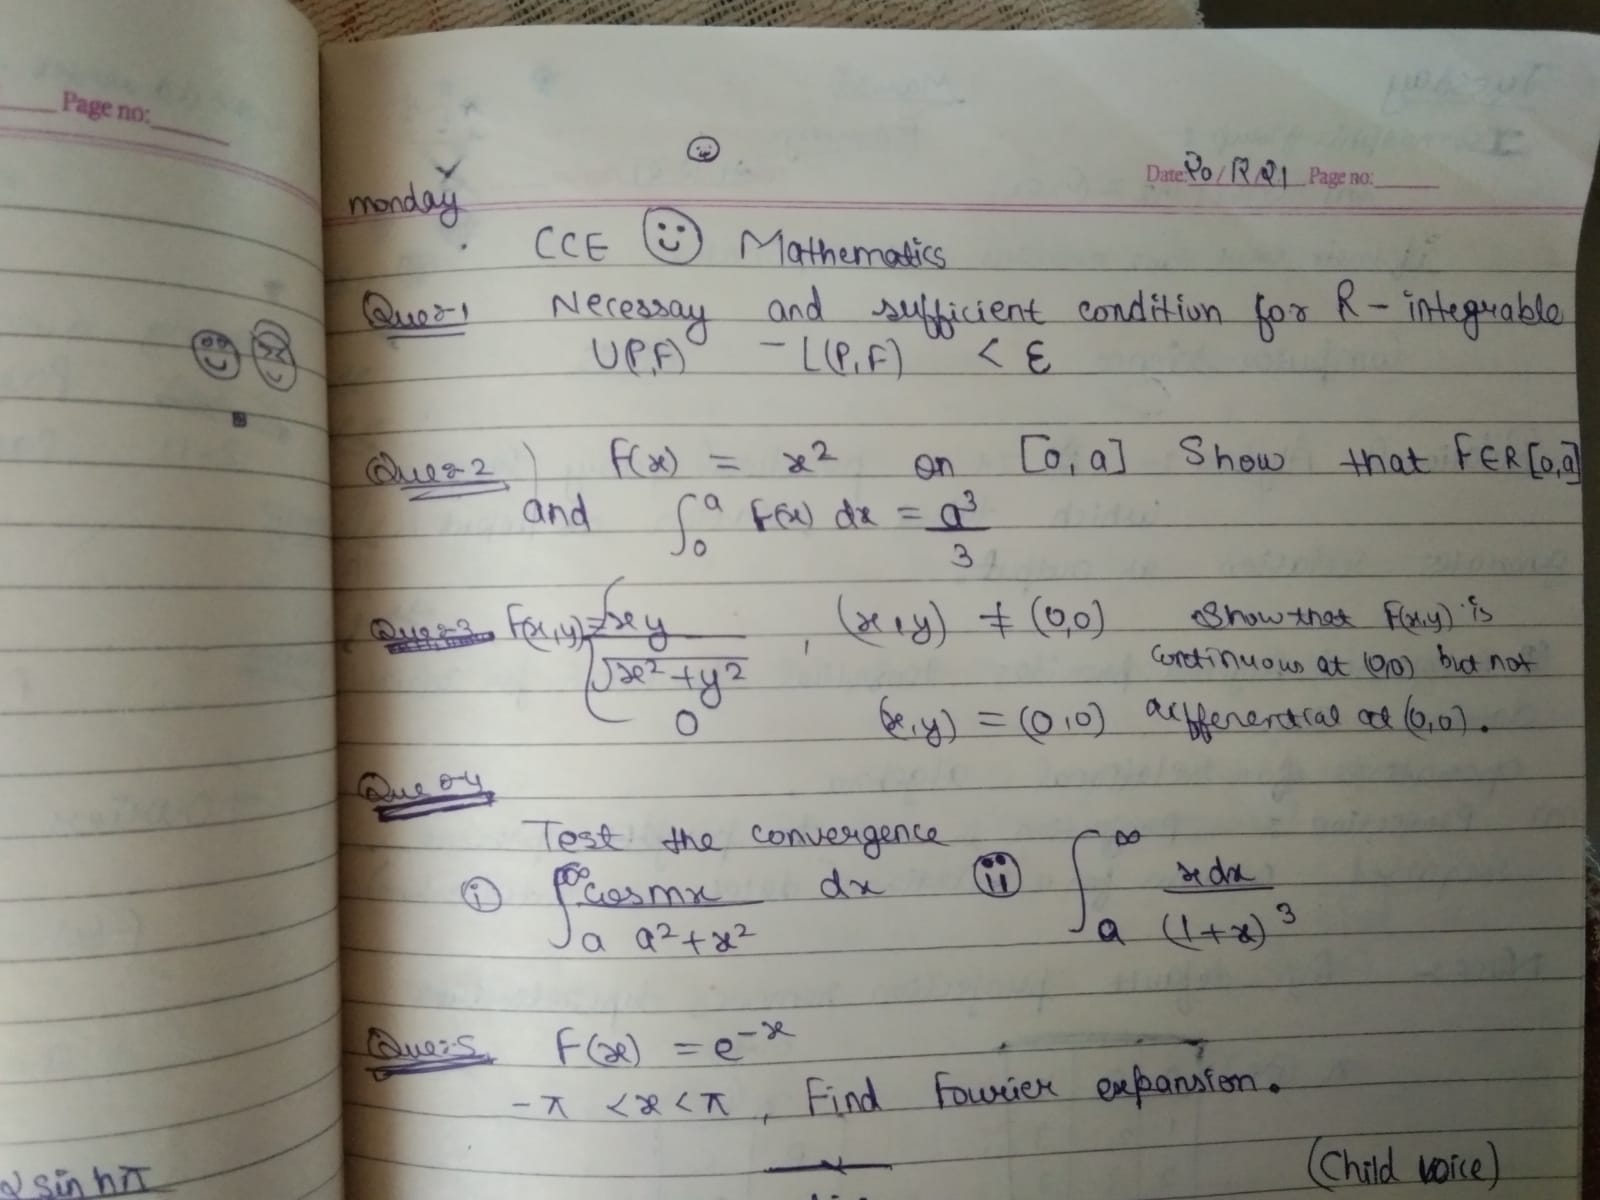 Page no:
Date: 20/12/21 Page no:
monday
CCE Mathematics
Ques-1 Necessay and sufficient condition for R-integrable
U(P,F) - L(P,F) < ε
Ques 2) F(x) = x² on [0,a] Show that F∈R[0,a]
and ∫₀ᵃ F(x) dx = a³/3
Ques-3 F(x,y) = { xy/√(x²+y²) , (x,y) ≠ (0,0) Show that F(x,y) is
continuous at (0,0) but not
0 (x,y) = (0,0) differential at (0,0).
Que 04
Test the convergence
(i) ∫ₐ^∞ cosmx/(a²+x²) dx (ii) ∫ₐ^∞ x dx/(1+x)³
Ques-5 F(x) = e⁻ˣ
-π < x < π, Find Fourier expansion.
(Child voice)
sin hπ